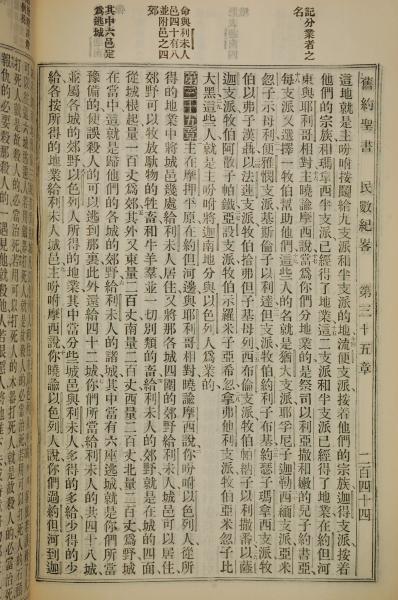 舊約聖書 民數紀畧 第三十五章 二百四十四
記分業者之
名
這地就是主吩咐按鬮給九支派和半支派的地流便支派按着他們的宗族迦得支派按着
他們的宗族和瑪拿西半支派已經得了地業這二支派和半支派已經得了地業在約但河
東與耶利哥相對主曉諭摩西說當爲你們分地業的是祭司以利亞撒和嫩的兒子約書亞
每支派又選擇一牧伯幫助他們這些人的名就是猶大支派耶孚尼子迦勒西緬支派亞米
忽子示母利便雅憫支派基斯倫子以利達但支派牧伯約利子布基約瑟子瑪拿西支派牧
伯以弗子漢聶以法蓮支派牧伯拾弗但子基母列西布倫支派牧伯帕納子以利撒番以薩
迦支派牧伯阿散子帕鐵亞設支派牧伯示羅米子亞希忽拿弗他利支派牧伯亞米忽子比
大黑這些人就是主吩咐將迦南地分與以色列人爲業的
命與利未人
邑四十有八
並附邑之四
郊
第三十五章 主在摩押平原在約但河邊與耶利哥相對曉諭摩西說你吩咐以色列人從所
得的地業中將城邑幾處給利未人居住又將那各城四圍的郊野給利未人城邑可以居住
郊野可以牧放馱物的牲畜和牛羊羣並一切別類的畜給利未人的郊野就是在城的四面
從城根起量一百丈爲郊其外又東量二百丈南量二百丈西量二百丈北量二百丈爲野城
其中六邑定
爲逃城
在當中這就是歸他們的各城的郊野給利未人的諸城其中當有六座逃城就是你們所當
豫備的使誤殺人的可以逃到那裏此外還給四十二城你們所當給利未人的共四十八城
並屬各城的郊野以色列人所得的地業其中當分些城邑與利未人多得的多給少得的少
給各按所得的地業給利未人城邑主吩咐摩西說你曉諭以色列人說你們過約但河到迦